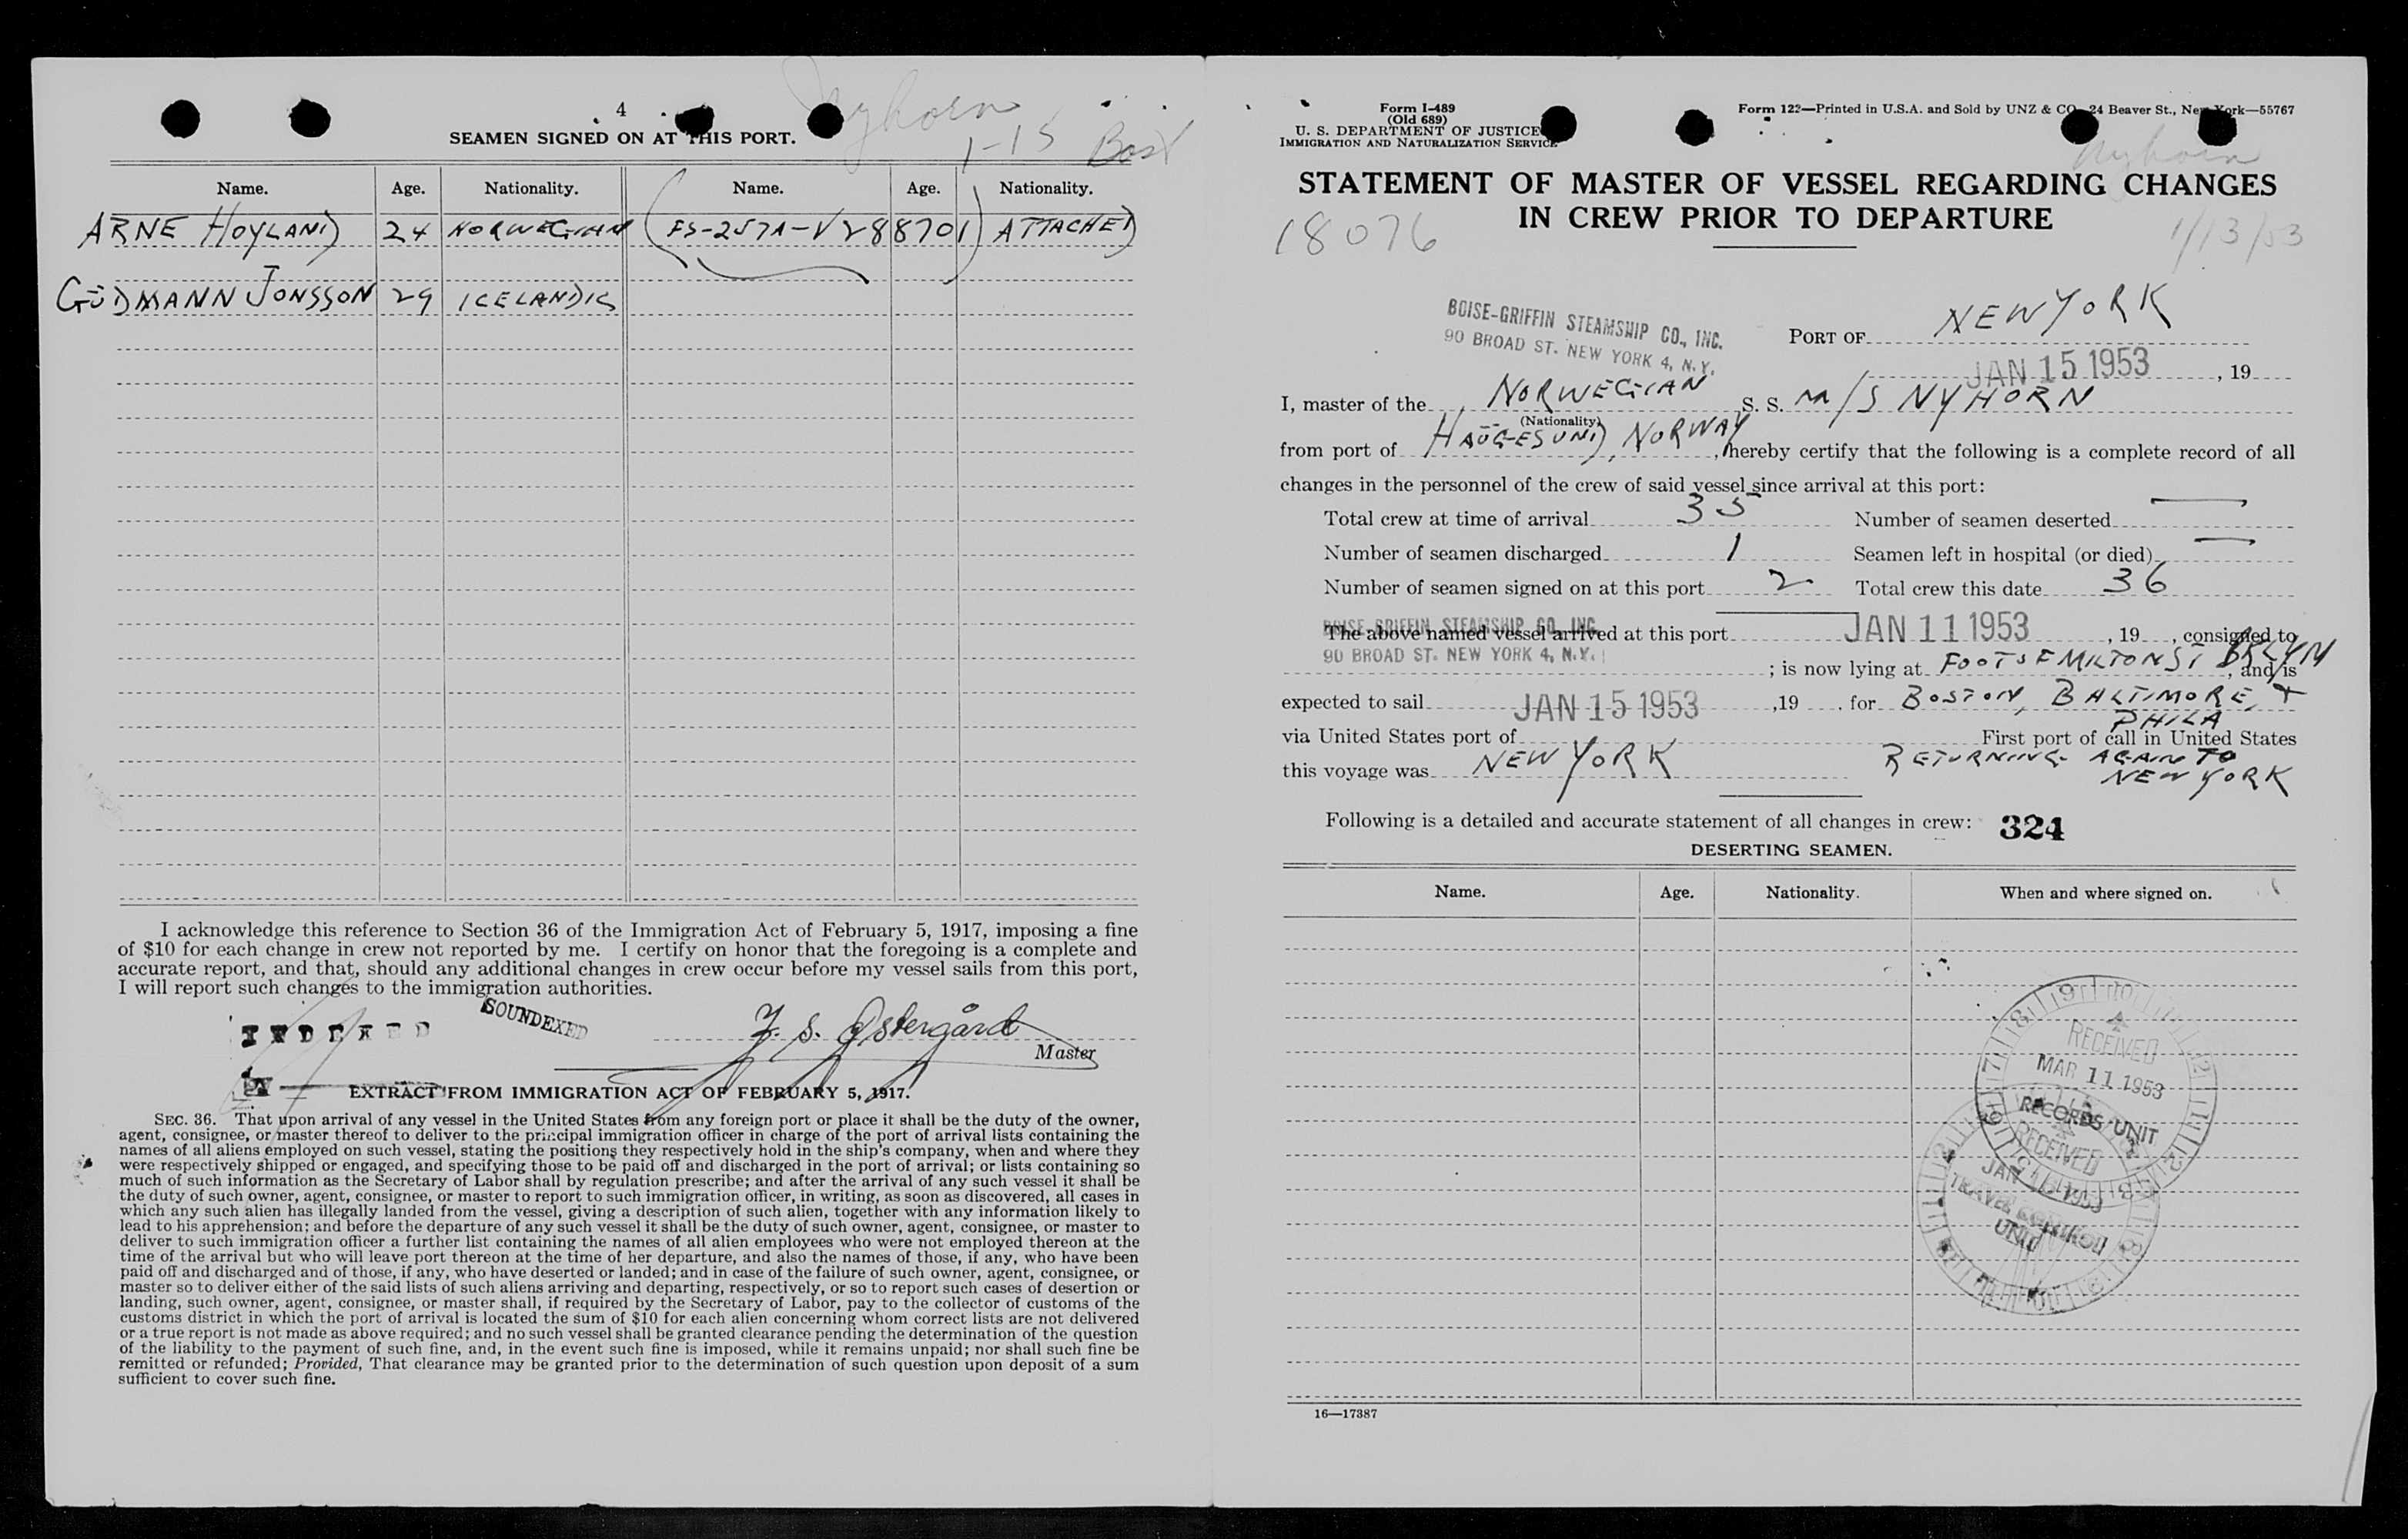 4
Nyhorn
1-15 Bost
SEAMEN SIGNED ON AT THIS PORT.
Name. Age. Nationality. Name. Age. Nationality.
ARNE HOYLAND 24 NORWEGIAN (FS-257A-V288701) ATTACHED
GUDMANN JONSSON 29 ICELANDIC
I acknowledge this reference to Section 36 of the Immigration Act of February 5, 1917, imposing a fine
of $10 for each change in crew not reported by me. I certify on honor that the foregoing is a complete and
accurate report, and that, should any additional changes in crew occur before my vessel sails from this port,
I will report such changes to the immigration authorities.
INDEXED
SOUNDEXED
Østergård
Master
EXTRACT FROM IMMIGRATION ACT OF FEBRUARY 5, 1917.
SEC. 36. That upon arrival of any vessel in the United States from any foreign port or place it shall be the duty of the owner,
agent, consignee, or master thereof to deliver to the principal immigration officer in charge of the port of arrival lists containing the
names of all aliens employed on such vessel, stating the positions they respectively hold in the ship's company, when and where they
were respectively shipped or engaged, and specifying those to be paid off and discharged in the port of arrival; or lists containing so
much of such information as the Secretary of Labor shall by regulation prescribe; and after the arrival of any such vessel it shall be
the duty of such owner, agent, consignee, or master to report to such immigration officer, in writing, as soon as discovered, all cases in
which any such alien has illegally landed from the vessel, giving a description of such alien, together with any information likely to
lead to his apprehension; and before the departure of any such vessel it shall be the duty of such owner, agent, consignee, or master to
deliver to such immigration officer a further list containing the names of all alien employees who were not employed thereon at the
time of the arrival but who will leave port thereon at the time of her departure, and also the names of those, if any, who have been
paid off and discharged and of those, if any, who have deserted or landed; and in case of the failure of such owner, agent, consignee, or
master so to deliver either of the said lists of such aliens arriving and departing, respectively, or so to report such cases of desertion or
landing, such owner, agent, consignee, or master shall, if required by the Secretary of Labor, pay to the collector of customs of the
customs district in which the port of arrival is located the sum of $10 for each alien concerning whom correct lists are not delivered
or a true report is not made as above required; and no such vessel shall be granted clearance pending the determination of the question
of the liability to the payment of such fine, and, in the event such fine is imposed, while it remains unpaid; nor shall such fine be
remitted or refunded; Provided, That clearance may be granted prior to the determination of such question upon deposit of a sum
sufficient to cover such fine.
Form I-489
(Old 689)
U. S. DEPARTMENT OF JUSTICE
IMMIGRATION AND NATURALIZATION SERVICE
Form 122—Printed in U.S.A. and Sold by UNZ & CO., 24 Beaver St., New York—55767
Nyhorn
STATEMENT OF MASTER OF VESSEL REGARDING CHANGES
IN CREW PRIOR TO DEPARTURE
18076
1/13/53
BOISE-GRIFFIN STEAMSHIP CO., INC.
90 BROAD ST. NEW YORK 4, N.Y.
PORT OF NEW YORK
JAN 15 1953, 19
I, master of the NORWEGIAN S. S. M/S NYHORN
(Nationality)
from port of HAUGESUND, NORWAY, hereby certify that the following is a complete record of all
changes in the personnel of the crew of said vessel since arrival at this port:
Total crew at time of arrival 35 Number of seamen deserted —
Number of seamen discharged 1 Seamen left in hospital (or died) —
Number of seamen signed on at this port 2 Total crew this date 36
The above named vessel arrived at this port JAN 11 1953, 19 , consigned to
BOISE-GRIFFIN STEAMSHIP CO., INC.
90 BROAD ST. NEW YORK 4, N.Y. ; is now lying at FOOT OF MILTON ST BKLYN, and is
expected to sail JAN 15 1953, 19 . for BOSTON, BALTIMORE, +
PHILA
via United States port of First port of call in United States
this voyage was NEW YORK RETURNING AGAIN TO
NEW YORK
Following is a detailed and accurate statement of all changes in crew: 324
DESERTING SEAMEN.
Name. Age. Nationality. When and where signed on.
RECEIVED
MAR 11 1953
RECORDS UNIT
RECEIVED
JAN 1953
TRAVEL CONTROL
UNIT
16—17387